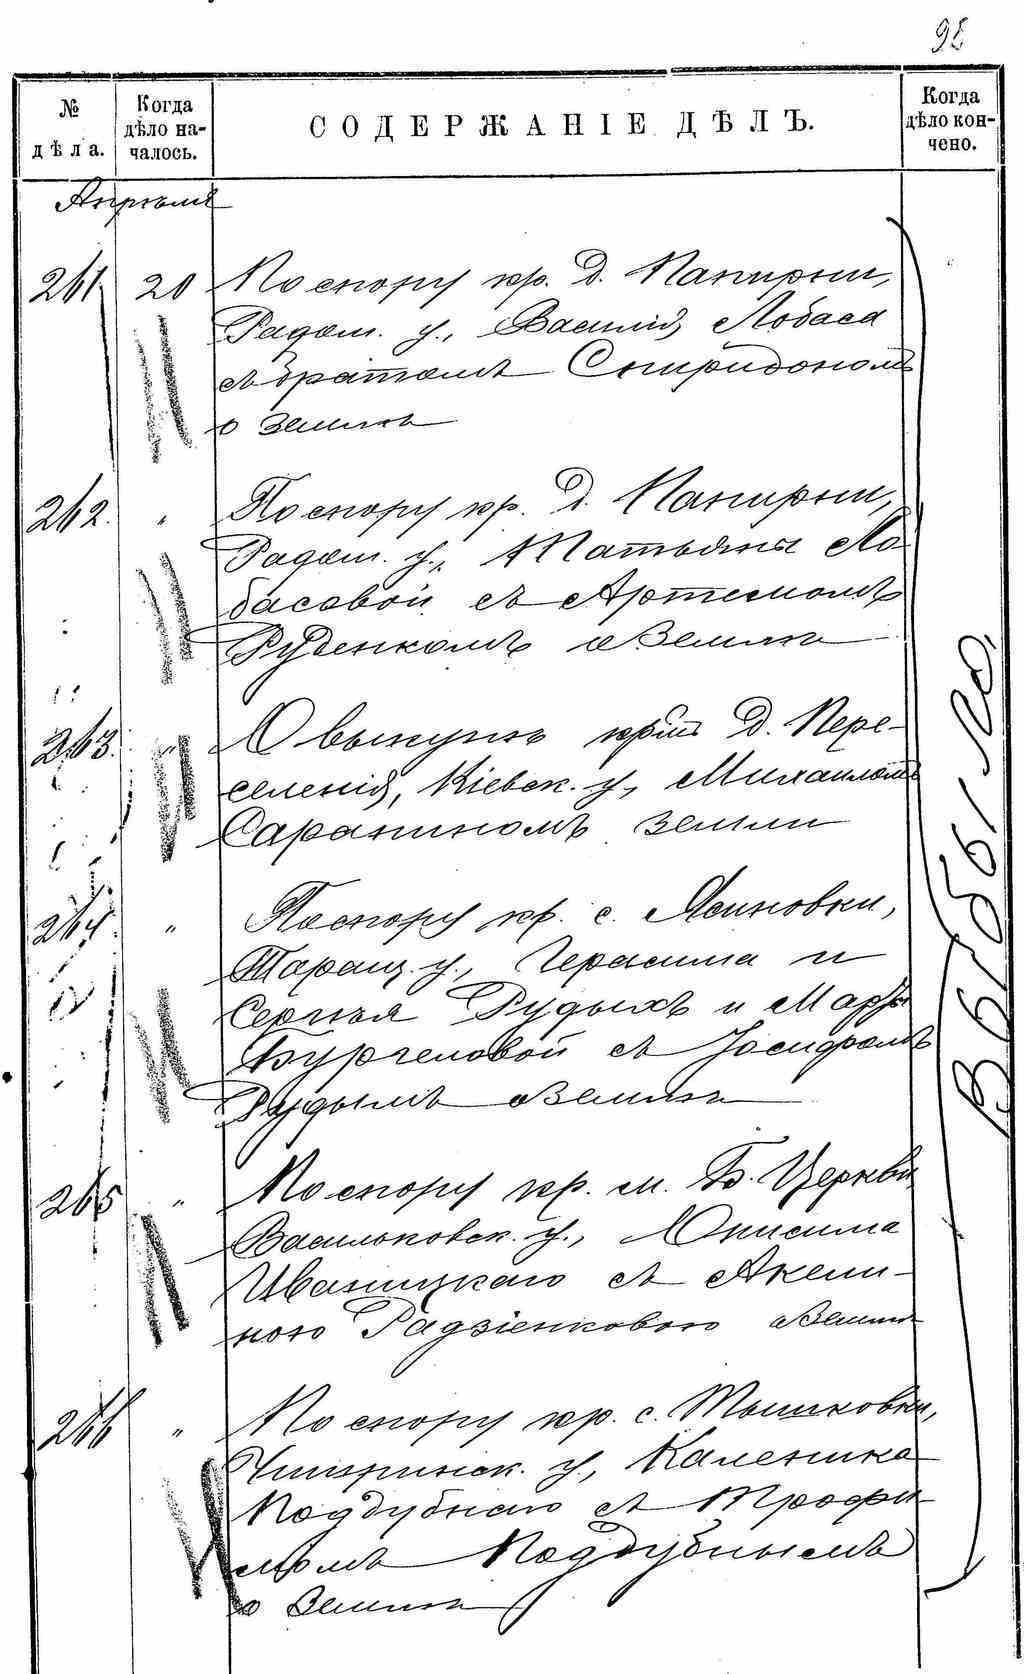 98
№ дѣла.
Когда дѣло началось.
СОДЕРЖАНІЕ ДѢЛЪ.
Когда дѣло кончено.
Апрѣля
261 20 По спору кр. д. Папирни,
Радом. у., Василія Лобаса
съ братомъ Спиридономъ
о землѣ
262. „ По спору кр. д. Папирни,
Радом. у., Татьяны Ло-
басовой съ Артемомъ
Руденкомъ о землѣ
263. „ О выкупѣ кр. д. Пере-
селенія, Кіевск. у., Михаиломъ
Сарапиномъ земли
264. „ По спору кр. с. Ясиновки,
Таращ. у., Герасима и
Сергѣя Рудыхъ и Марфы
Бургеловой съ Іосифомъ
Рудымъ о землѣ
265 „ По спору кр. м. Б. Церкви
Васильковск. у., Онисима
Иваницкаго съ Акели-
ною Радзіенковою о землѣ
266 „ По спору кр. с. Тышковки,
Чигиринск. у., Каленика
Поддубнаго съ Трофи-
момъ Поддубнымъ
о землѣ
Выбыло